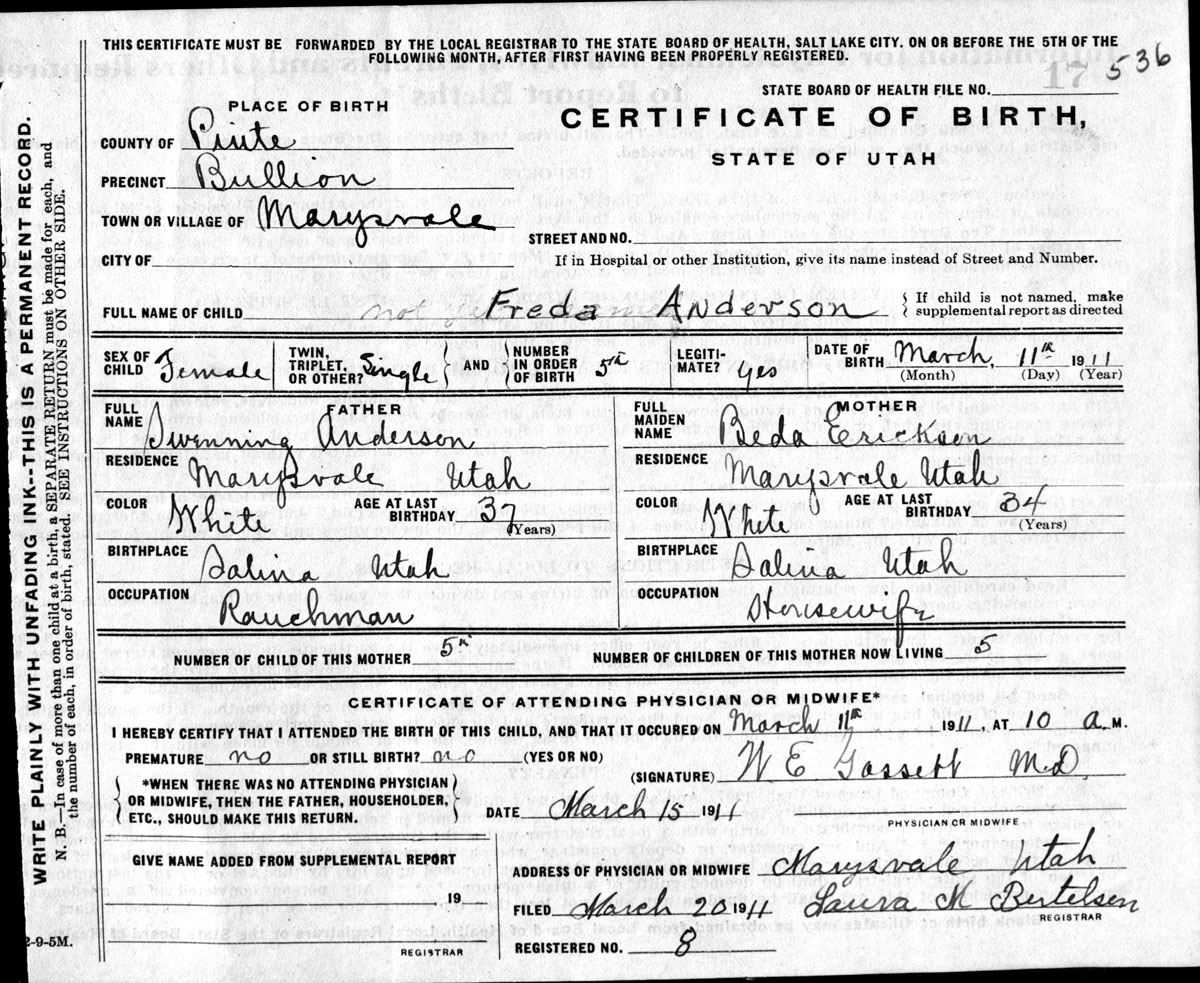 THIS CERTIFICATE MUST BE FORWARDED BY THE LOCAL REGISTRAR TO THE STATE BOARD OF HEALTH, SALT LAKE CITY. ON OR BEFORE THE 5TH OF THE
FOLLOWING MONTH, AFTER FIRST HAVING BEEN PROPERLY REGISTERED.
536
STATE BOARD OF HEALTH FILE NO.
PLACE OF BIRTH
CERTIFICATE OF BIRTH,
STATE OF UTAH
COUNTY OF Piute
PRECINCT Bullion
TOWN OR VILLAGE OF Marysvale
STREET AND NO.
CITY OF
If in Hospital or other Institution, give its name instead of Street and Number.
FULL NAME OF CHILD not Freda Anderson { If child is not named, make
supplemental report as directed
SEX OF CHILD Female TWIN, TRIPLET, OR OTHER? Single } AND { NUMBER IN ORDER OF BIRTH 5th LEGITI-MATE? yes DATE OF BIRTH March, 11th 1911
(Month) (Day) (Year)
FATHER
FULL NAME Anderson
RESIDENCE Marysvale Utah
COLOR White AGE AT LAST BIRTHDAY 37 (Years)
BIRTHPLACE Salina Utah
OCCUPATION Ranchman
MOTHER
FULL MAIDEN NAME Beda Erickson
RESIDENCE Marysvale Utah
COLOR White AGE AT LAST BIRTHDAY 34 (Years)
BIRTHPLACE Salina Utah
OCCUPATION Housewife
NUMBER OF CHILD OF THIS MOTHER 5th NUMBER OF CHILDREN OF THIS MOTHER NOW LIVING 5
CERTIFICATE OF ATTENDING PHYSICIAN OR MIDWIFE*
I HEREBY CERTIFY THAT I ATTENDED THE BIRTH OF THIS CHILD, AND THAT IT OCCURED ON March 11th, 1911, AT 10 a. M.
PREMATURE no OR STILL BIRTH? no (YES OR NO)
(SIGNATURE) W E Gossett M.D.
PHYSICIAN OR MIDWIFE
{ *WHEN THERE WAS NO ATTENDING PHYSICIAN
OR MIDWIFE, THEN THE FATHER, HOUSEHOLDER,
ETC., SHOULD MAKE THIS RETURN. }
DATE March 15 1911
GIVE NAME ADDED FROM SUPPLEMENTAL REPORT
19
REGISTRAR
ADDRESS OF PHYSICIAN OR MIDWIFE Marysvale Utah
FILED March 20 1911 Laura M Bertelsen
REGISTRAR
REGISTERED NO. 8
WRITE PLAINLY WITH UNFADING INK--THIS IS A PERMANENT RECORD.
N. B.—In case of more than one child at a birth, a SEPARATE RETURN must be made for each, and
the number of each, in order of birth, stated. SEE INSTRUCTIONS ON OTHER SIDE.
2-9-5M.